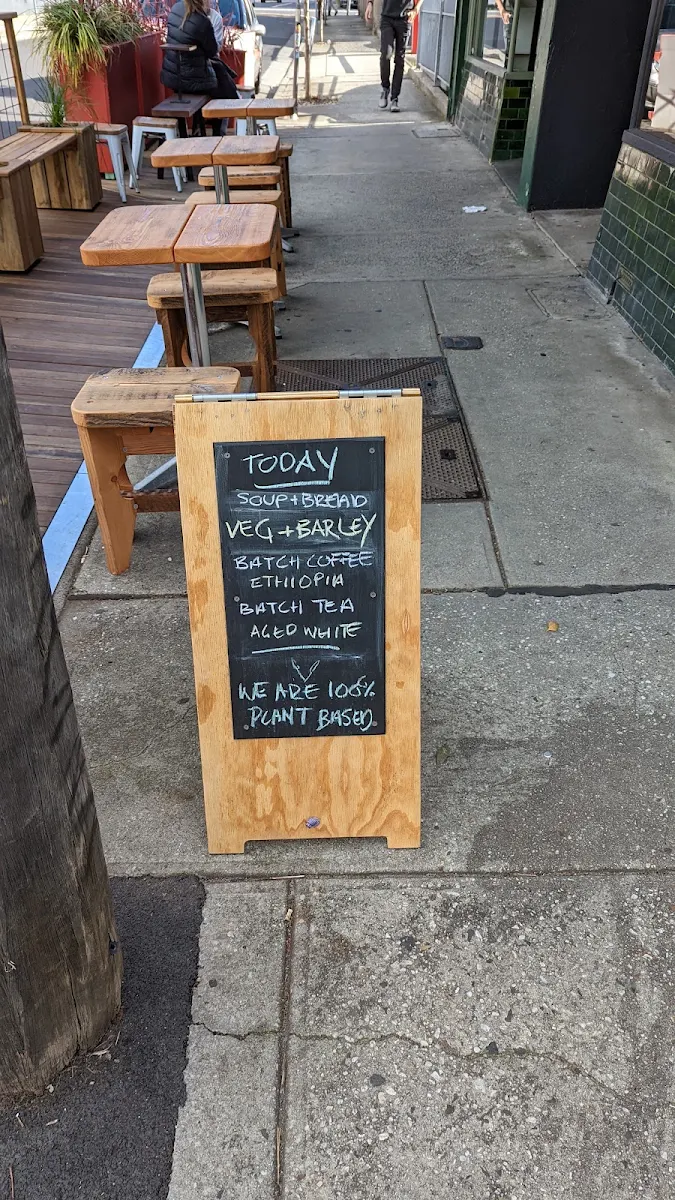 TODAY
SOUP+BREAD
VEG+BARLEY
BATCH COFFEE
ETHIOPIA
BATCH TEA
AGED WHITE
WE ARE 100%
PLANT BASED